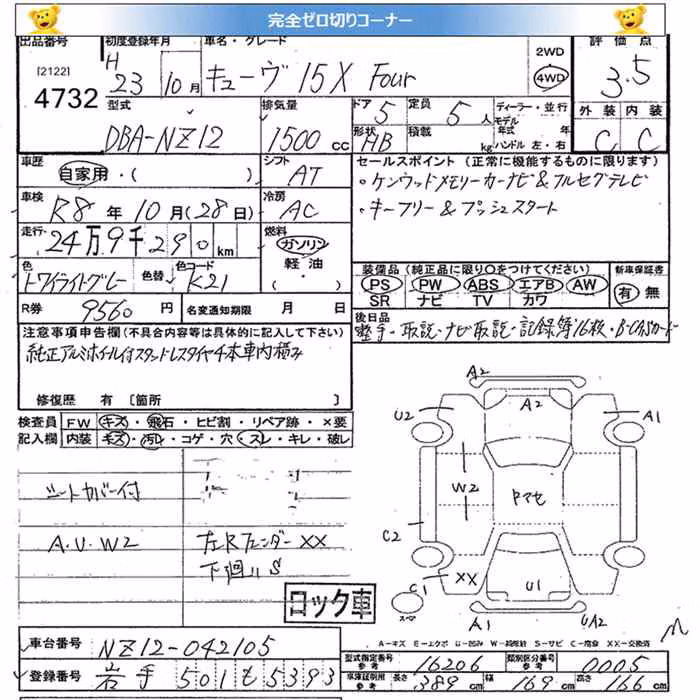 完全ゼロ切りコーナー
出品番号 初度登録年月 車名・グレード 2WD 評価点
[2122] H 4WD
4732 23年10月 キューヴ 15X Four 3.5
型式 排気量 ドア 5 定員 5人 ディーラー・並行 外装 内装
モデル 年式 年
DBA-NZ12 1500cc 形状 HB 積載 kg ハンドル 左・右 C C
車歴 シフト セールスポイント (正常に機能するものに限ります)
自家用・( ) AT ・ケンウッドメモリーカーナビ&フルセグテレビ
車検 冷房 ・キーフリー&プッシュスタート
R8年10月(28日) AC
走行 燃料
24万9千290km ガソリン
軽油 装備品(純正品に限り○をつけてください) 新車保証書
色 色替 色コード ・( ) PS PW ABS エアB AW 有 無
トワイライトグレー K21 SR ナビ TV カワ
R券 9560円 名変通知期限 月 日 後日品
整手・取説・ナビ取説・記録簿16枚・B-CASカード
注意事項申告欄(不具合内容等は具体的に記入して下さい)
純正アルミホイール付スタッドレスタイヤ4本車内積み
修復歴 有 [箇所 ]
検査員 FW キズ・飛石・ヒビ割・リペア跡・×要
記入欄 内装 キズ・汚レ・コゲ・穴・スレ・キレ・破レ
シートカバー付
A.U.W2 左Rフェンダー XX
下廻りS
A2
A2
U2 A1
W2 Rマセ
C2
XX
C1 U1
スペアー A1 UA2
ロック車
A-キズ E-エクボ U-凹み W-補修跡 S-サビ C-腐食 XX-交換済
車台番号 NZ12-042105 型式指定番号 参考 16206 類別区分番号 参考 0005
登録番号 岩手 501 も 5393 車庫証明用 参考 長さ 389cm 幅 169cm 高さ 166cm